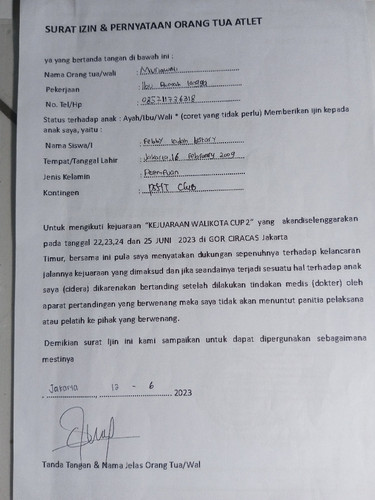 SURAT IZIN & PERNYATAAN ORANG TUA ATLET
ya yang bertanda tangan di bawah ini :
Nama Orang tua/wali :
Pekerjaan : Ibu Rumah tangga
No. Tel/Hp :
Status terhadap anak : Ayah/Ibu/Wali * (coret yang tidak perlu) Memberikan ijin kepada
anak saya, yaitu :
Nama Siswa/i : Febby
Tempat/Tanggal Lahir : Jakarta, 16 February 2009
Jenis Kelamin : Perempuan
Kontingen : Club
Untuk mengikuti kejuaraan "KEJUARAAN WALIKOTA CUP 2" yang akandiselenggarakan
pada tanggal 22,23,24 dan 25 JUNI 2023 di GOR CIRACAS Jakarta
Timur, bersama ini pula saya menyatakan dukungan sepenuhnya terhadap kelancaran
jalannya kejuaraan yang dimaksud dan jika seandainya terjadi sesuatu hal terhadap anak
saya (cidera) dikarenakan bertanding setelah dilakukan tindakan medis (dokter) oleh
aparat pertandingan yang berwenang maka saya tidak akan menuntut panitia pelaksana
atau pelatih ke pihak yang berwenang.
Demikian surat Ijin ini kami sampaikan untuk dapat dipergunakan sebagaimana
mestinya
Jakarta 17 - 6 2023
Tanda Tangan & Nama Jelas Orang Tua/Wal